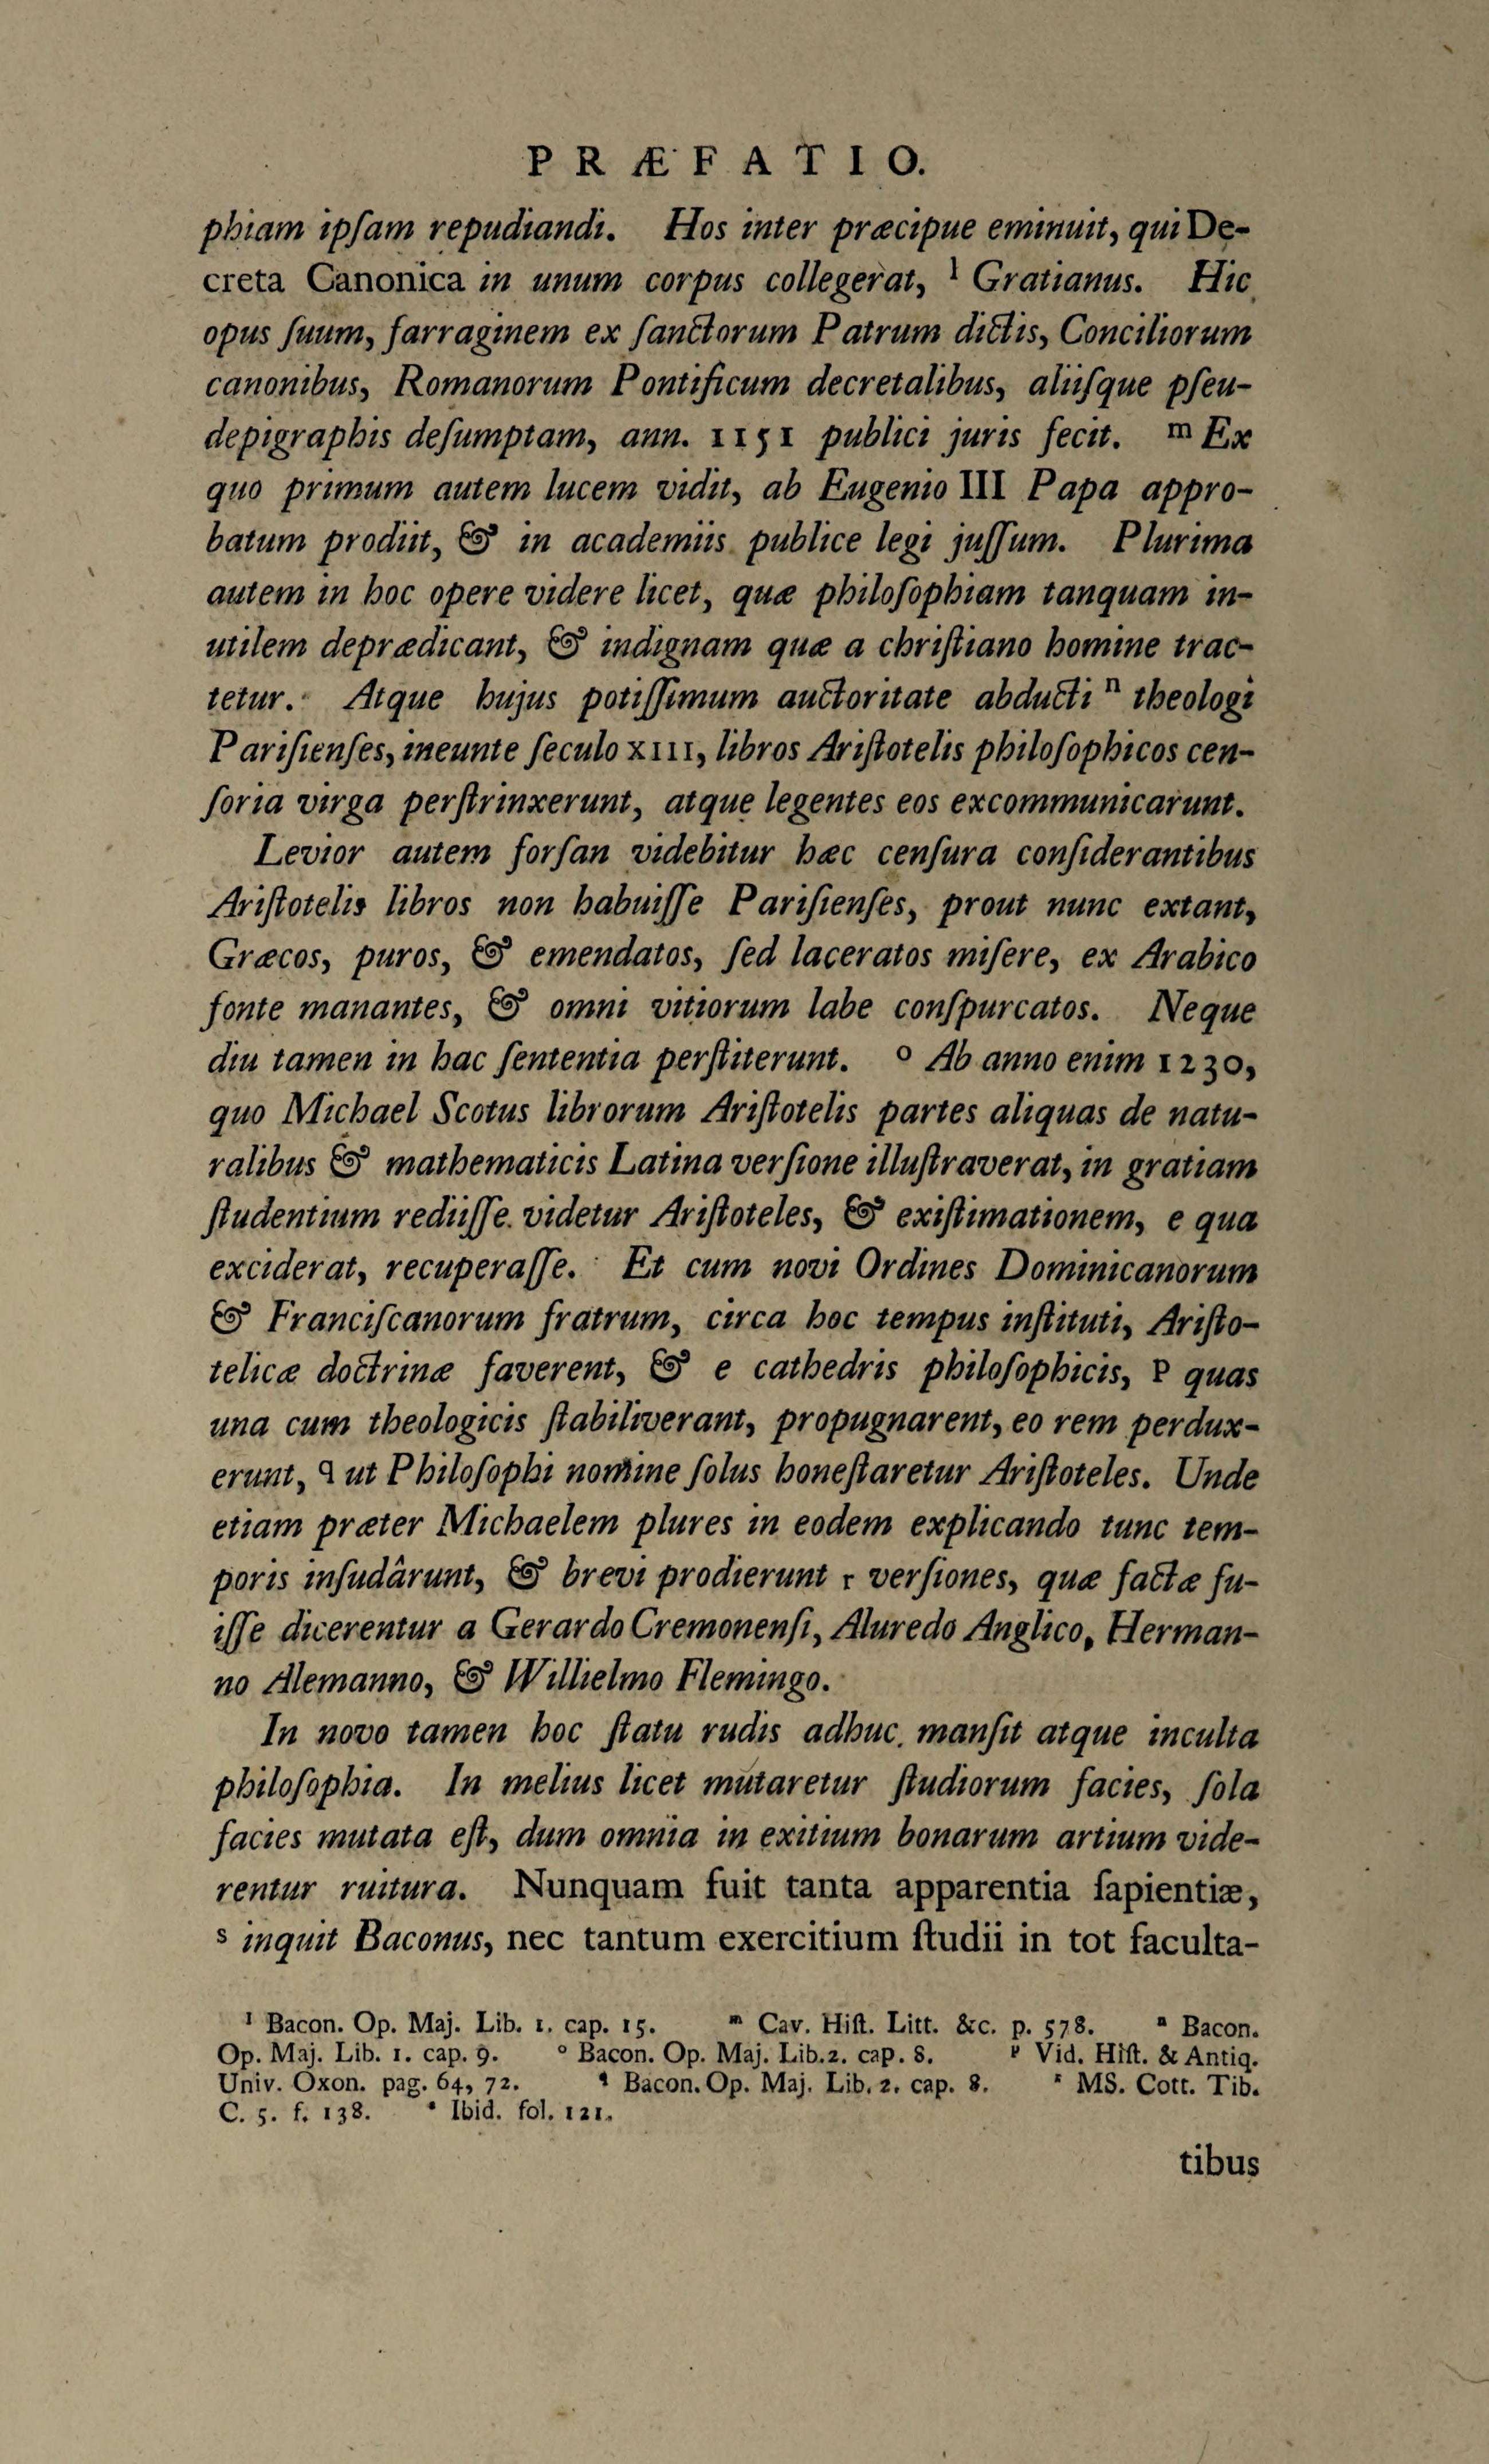 PRÆFATIO.
phiam ipſam repudiandi. Hos inter præcipue eminuit, qui De-
creta Canonica in unum corpus collegerat, l Gratianus. Hic
opus ſuum, farraginem ex ſanctorum Patrum dictis, Conciliorum
canonibus, Romanorum Pontificum decretalibus, aliiſque pſeu-
depigraphis deſumptam, ann. 1151 publici juris fecit. m Ex
quo primum autem lucem vidit, ab Eugenio III Papa appro-
batum prodiit, & in academiis publice legi juſſum. Plurima
autem in hoc opere videre licet, quæ philoſophiam tanquam in-
utilem deprædicant, & indignam quæ a chriſtiano homine trac-
tetur. Atque hujus potiſſimum auctoritate abducti n theologi
Pariſienſes, ineunte ſeculo XIII, libros Ariſtotelis philoſophicos cen-
ſoria virga perſtrinxerunt, atque legentes eos excommunicarunt.
Levior autem forſan videbitur hæc cenſura conſiderantibus
Ariſtotelis libros non habuiſſe Pariſienſes, prout nunc extant,
Græcos, puros, & emendatos, ſed laceratos miſere, ex Arabico
fonte manantes, & omni vitiorum labe conſpurcatos. Neque
diu tamen in hac ſententia perſtiterunt. o Ab anno enim 1230,
quo Michael Scotus librorum Ariſtotelis partes aliquas de natu-
ralibus & mathematicis Latina verſione illuſtraverat, in gratiam
ſtudentium rediiſſe videtur Ariſtoteles, & exiſtimationem, e qua
exciderat, recuperaſſe. Et cum novi Ordines Dominicanorum
& Franciſcanorum fratrum, circa hoc tempus inſtituti, Ariſto-
telicæ doctrinæ faverent, & e cathedris philoſophicis, p quas
una cum theologicis ſtabiliverant, propugnarent, eo rem perdux-
erunt, q ut Philoſophi nomine ſolus honeſtaretur Ariſtoteles. Unde
etiam præter Michaelem plures in eodem explicando tunc tem-
poris inſudârunt, & brevi prodierunt r verſiones, quæ factæ fu-
iſſe dicerentur a Gerardo Cremonenſi, Aluredo Anglico, Herman-
no Alemanno, & Willielmo Flemingo.
In novo tamen hoc ſtatu rudis adhuc manſit atque inculta
philoſophia. In melius licet mutaretur ſtudiorum facies, ſola
facies mutata eſt, dum omnia in exitium bonarum artium vide-
rentur ruitura. Nunquam fuit tanta apparentia ſapientiæ,
s inquit Baconus, nec tantum exercitium ſtudii in tot faculta-
l Bacon. Op. Maj. Lib. 1. cap. 15. m Cav. Hiſt. Litt. &c. p. 578. n Bacon.
Op. Maj. Lib. 1. cap. 9. o Bacon. Op. Maj. Lib. 2. cap. 8. p Vid. Hiſt. & Antiq.
Univ. Oxon. pag. 64, 72. q Bacon. Op. Maj. Lib. 2. cap. 8. r MS. Cott. Tib.
C. 5. f. 138. s Ibid. fol. 121.
tibus